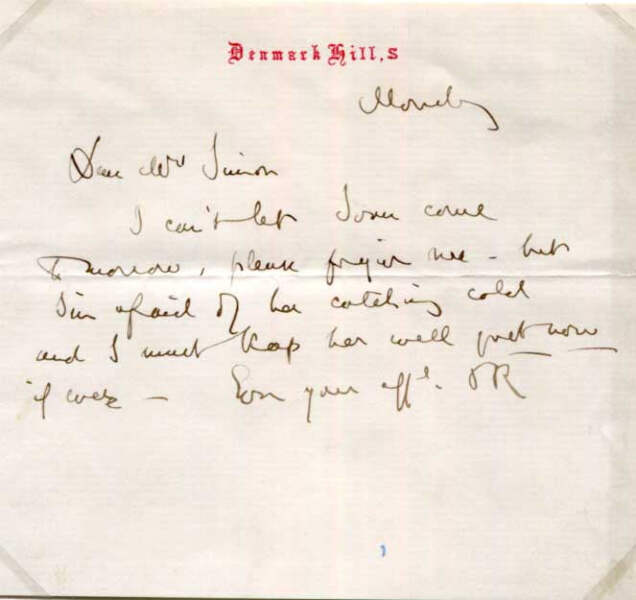 Denmark Hill, S
Monday
Dear Mrs Simon
I can't let Joan come
tomorrow, please forgive me - but
I'm afraid of her catching cold
and I must keep her well just now
if ever - Ever your affte. JR